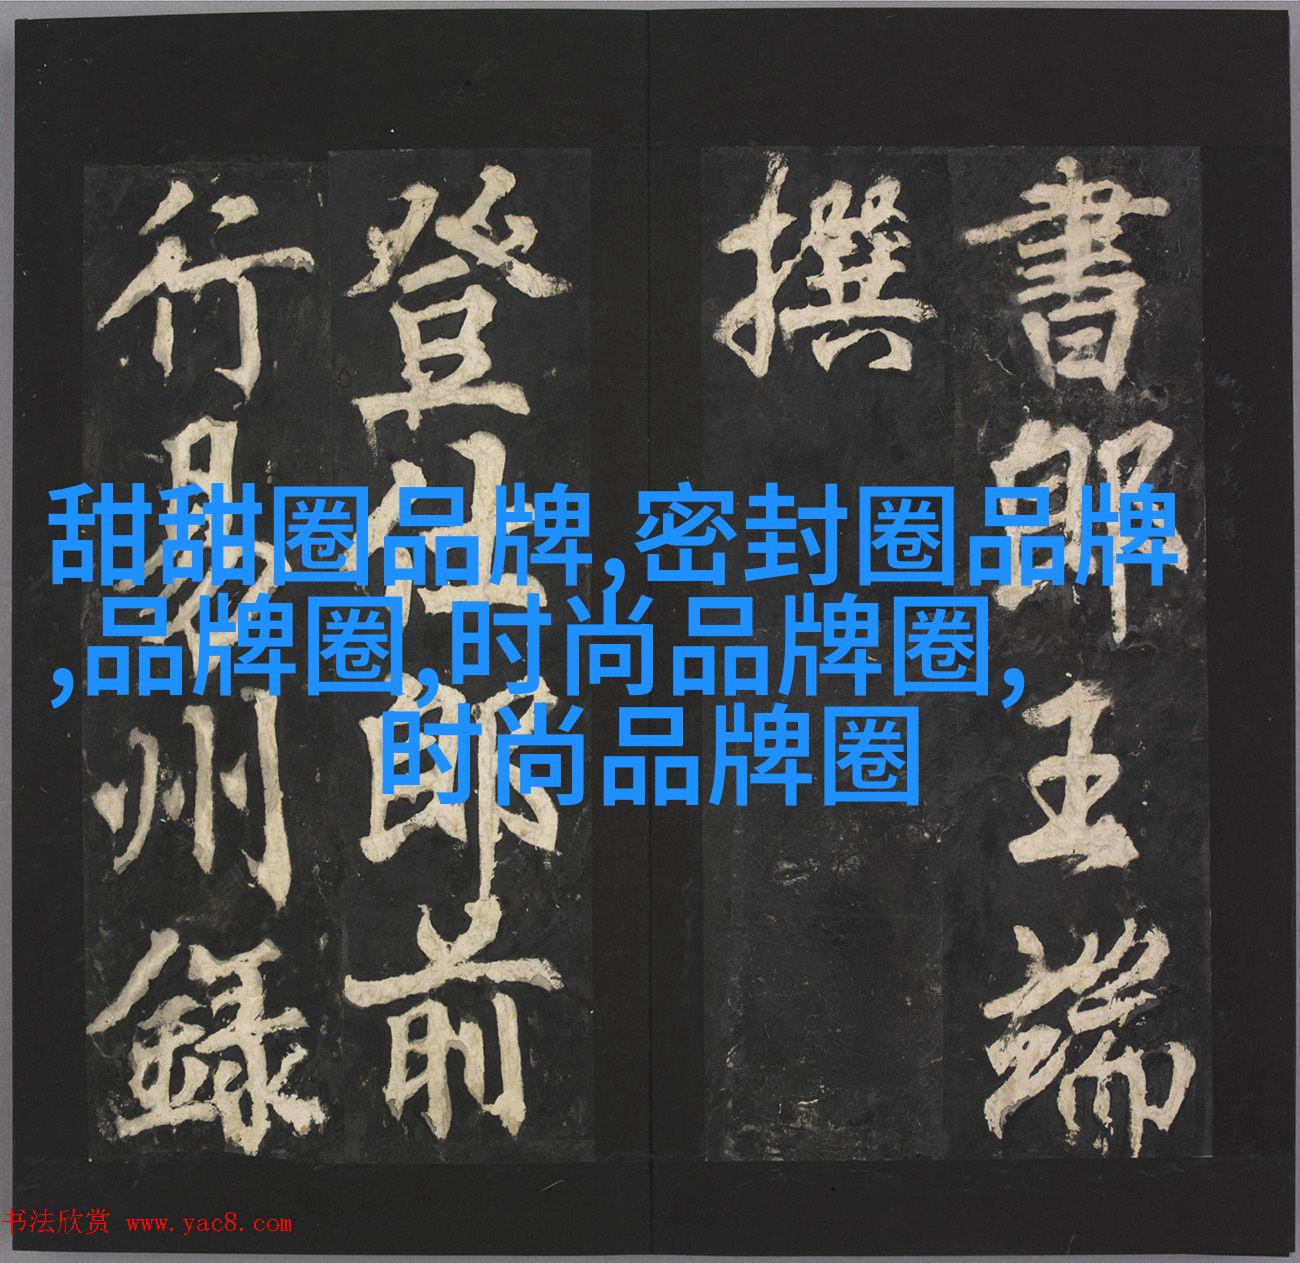 書郎王端
撰
登仕郎前
行易州録
甜甜圈品牌,密封圈品牌
,品牌圈,时尚品牌圈,
时尚品牌圈
书法欣赏 www.yac8.com